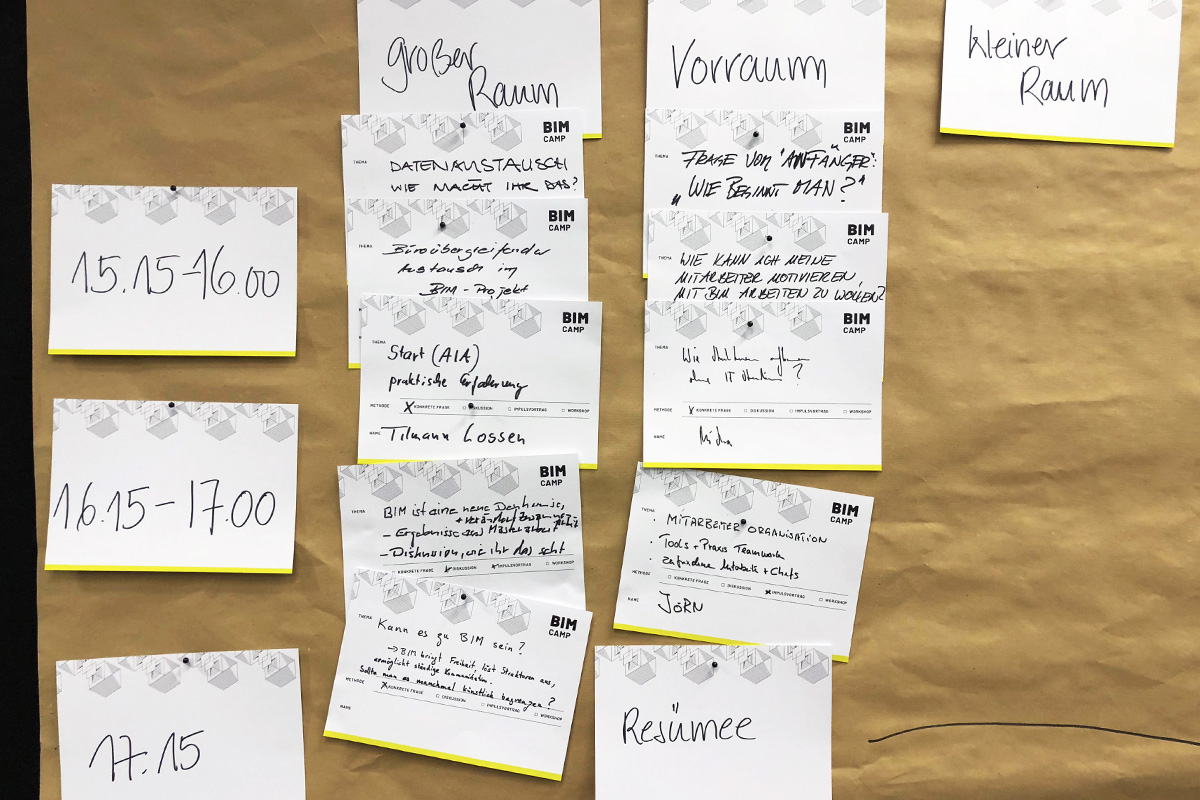 großer
Raum
Vorraum
kleiner
Raum
BIM
CAMP
THEMA
DATENAUSTAUSCH
WIE MACHT IHR DAS?
BIM
CAMP
THEMA
FRAGE VOM "ANFÄNGER":
„WIE BEGINNT MAN?“
15.15-16.00
BIM
CAMP
THEMA
Büroübergreifender
Austausch im
BIM-Projekt
BIM
CAMP
THEMA
WIE KANN ICH MEINE
MITARBEITER MOTIVIEREN,
MIT BIM ARBEITEN ZU WOLLEN?
BIM
CAMP
THEMA
Start (AIA)
praktische Erfahrung
METHODE X KONKRETE FRAGE DISKUSSION IMPULSVORTRAG WORKSHOP
NAME Tilmann Lossen
BIM
CAMP
THEMA
Wie
IT ?
METHODE X KONKRETE FRAGE DISKUSSION IMPULSVORTRAG WORKSHOP
NAME
16.15-17.00
BIM
CAMP
THEMA
BIM ist eine neue Denkweise,
- Ergebnisse aus Masterarbeit
- Diskussion, wie ihr das seht
KONKRETE FRAGE X DISKUSSION X IMPULSVORTRAG WORKSHOP
BIM
CAMP
THEMA
· MITARBEITER ORGANISATION
· Tools + Praxis Teamwork
· zufriedene Mitarbeiter + Chefs
METHODE KONKRETE FRAGE DISKUSSION X IMPULSVORTRAG WORKSHOP
NAME JÖRN
BIM
CAMP
THEMA
Kann es zu BIM sein?
→ BIM bringt Freiheit, löst Strukturen aus,
ermöglicht ständige Kommunikation.
Sollte man es manchmal künstlich begrenzen?
METHODE X KONKRETE FRAGE DISKUSSION IMPULSVORTRAG WORKSHOP
NAME
17.15
Resümee